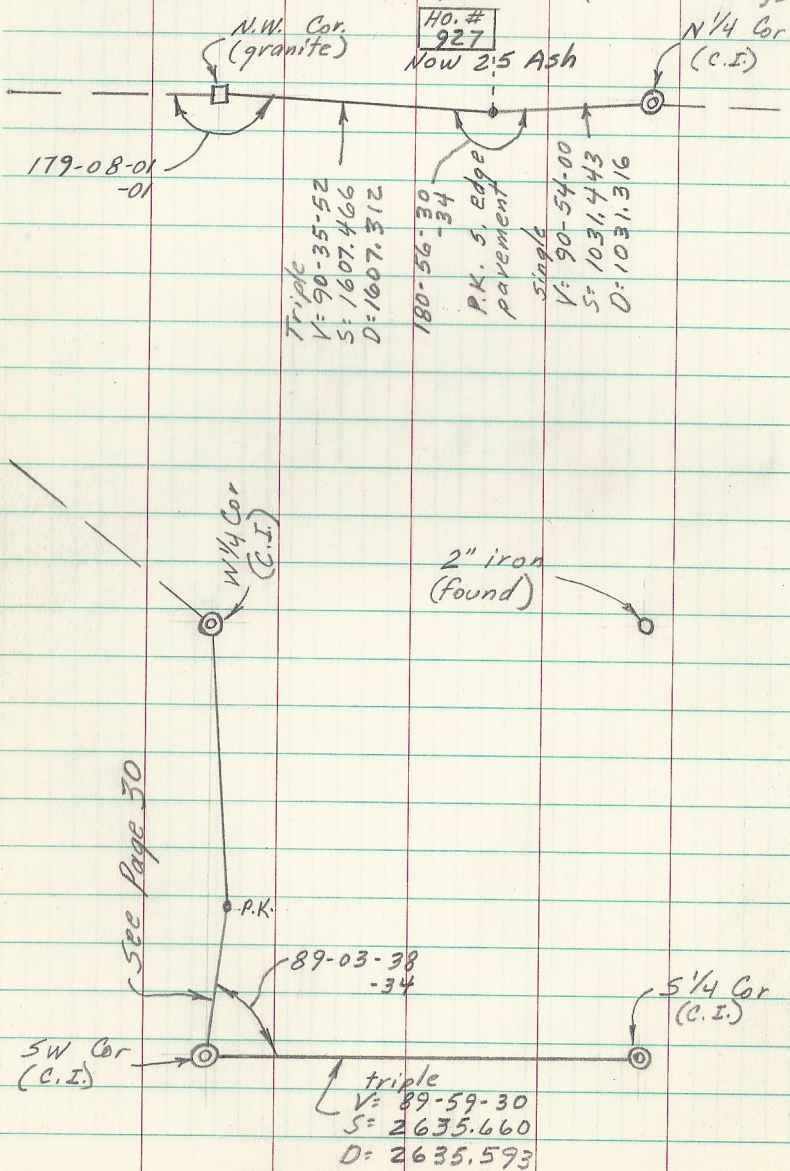 N.W. Cor.
(granite)
HO. #
927
Now 25 Ash
N 1/4 Cor
(C.I.)
179-08-01
-01
Triple
V= 90-35-52
S= 1607.466
D= 1607.312
180-56-30
-34
P.K. S. edge
pavement
Single
V= 90-54-00
S= 1031.443
D= 1031.316
W 1/4 Cor
(C.I.)
2" iron
(found)
See Page 30
P.K.
89-03-38
-34
S 1/4 Cor
(C.I.)
SW Cor
(C.I.)
triple
V= 89-59-30
S= 2635.660
D= 2635.593